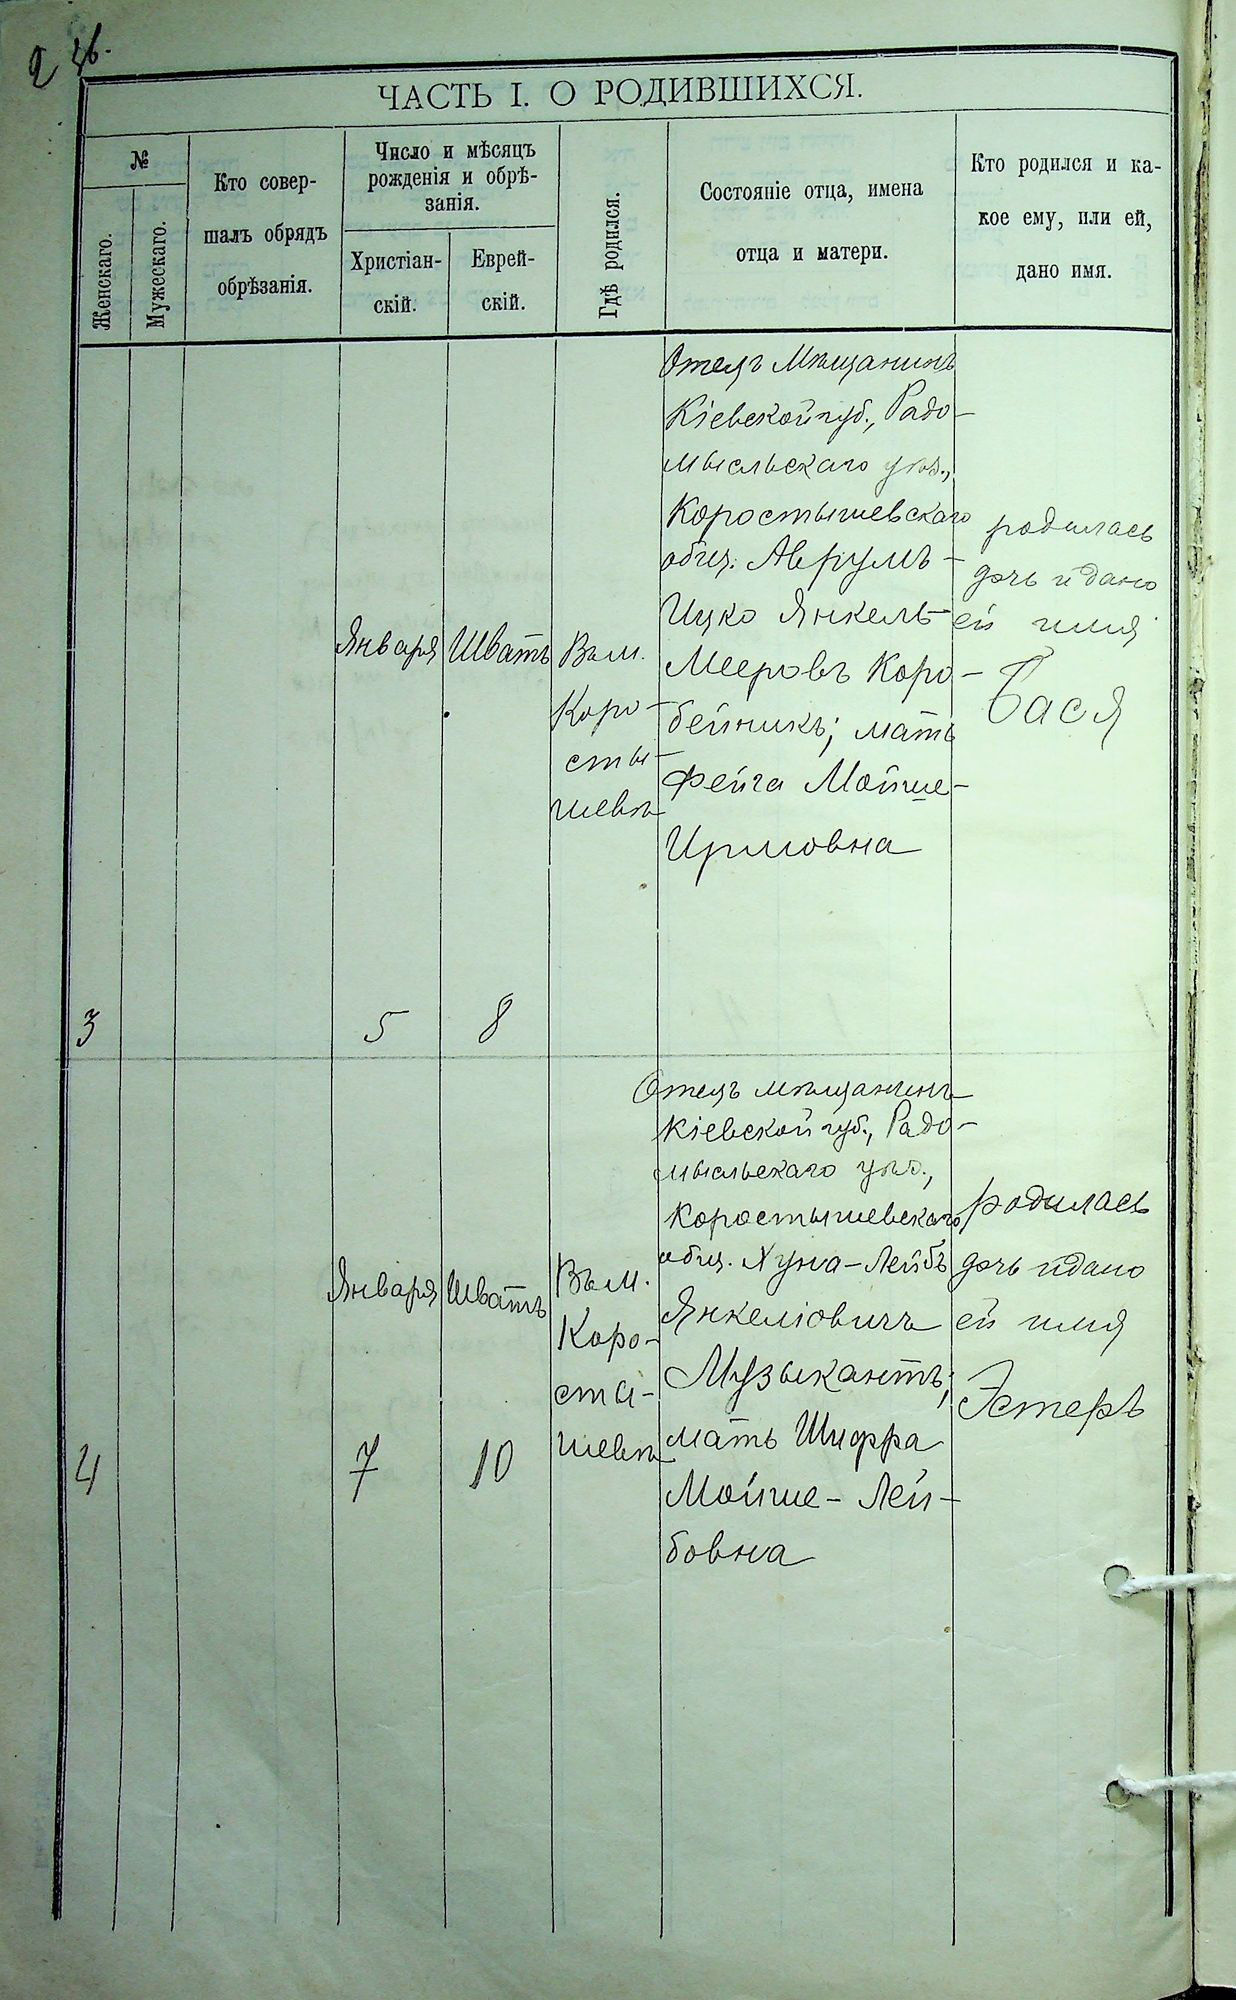 2 зв.
ЧАСТЬ I. О РОДИВШИХСЯ.
№
Женскаго.
Мужескаго.
Кто совер-
шалъ обрядъ
обрѣзанія.
Число и мѣсяцъ
рожденія и обрѣ-
занія.
Христіан-
скій.
Еврей-
скій.
Гдѣ родился.
Состояніе отца, имена
отца и матери.
Кто родился и ка-
кое ему, или ей,
дано имя.
3
Января
5
Шватъ
8
Въ м.
Коро-
сты-
шевѣ
Отецъ мѣщанинъ
Кіевской губ., Радо-
мысльскаго уѣз.,
Коростышевскаго
общ. Аврумъ-
Ицко Янкель-
Мееровъ Коро-
бейникъ; мать
Фейга Мойше-
Ирмовна
родилась
дочь и дано
ей имя
Бася
4
Января
7
Шватъ
10
Въ м.
Коро-
сты-
шевѣ
Отецъ мѣщанинъ
Кіевской губ., Радо-
мысльскаго уѣз.,
Коростышевскаго
общ. Хуна-Лейбъ
Янкеліовичъ
Музыкантъ;
мать Шифра
Мойше-Лей-
бовна
родилась
дочь и дано
ей имя
Эстеръ